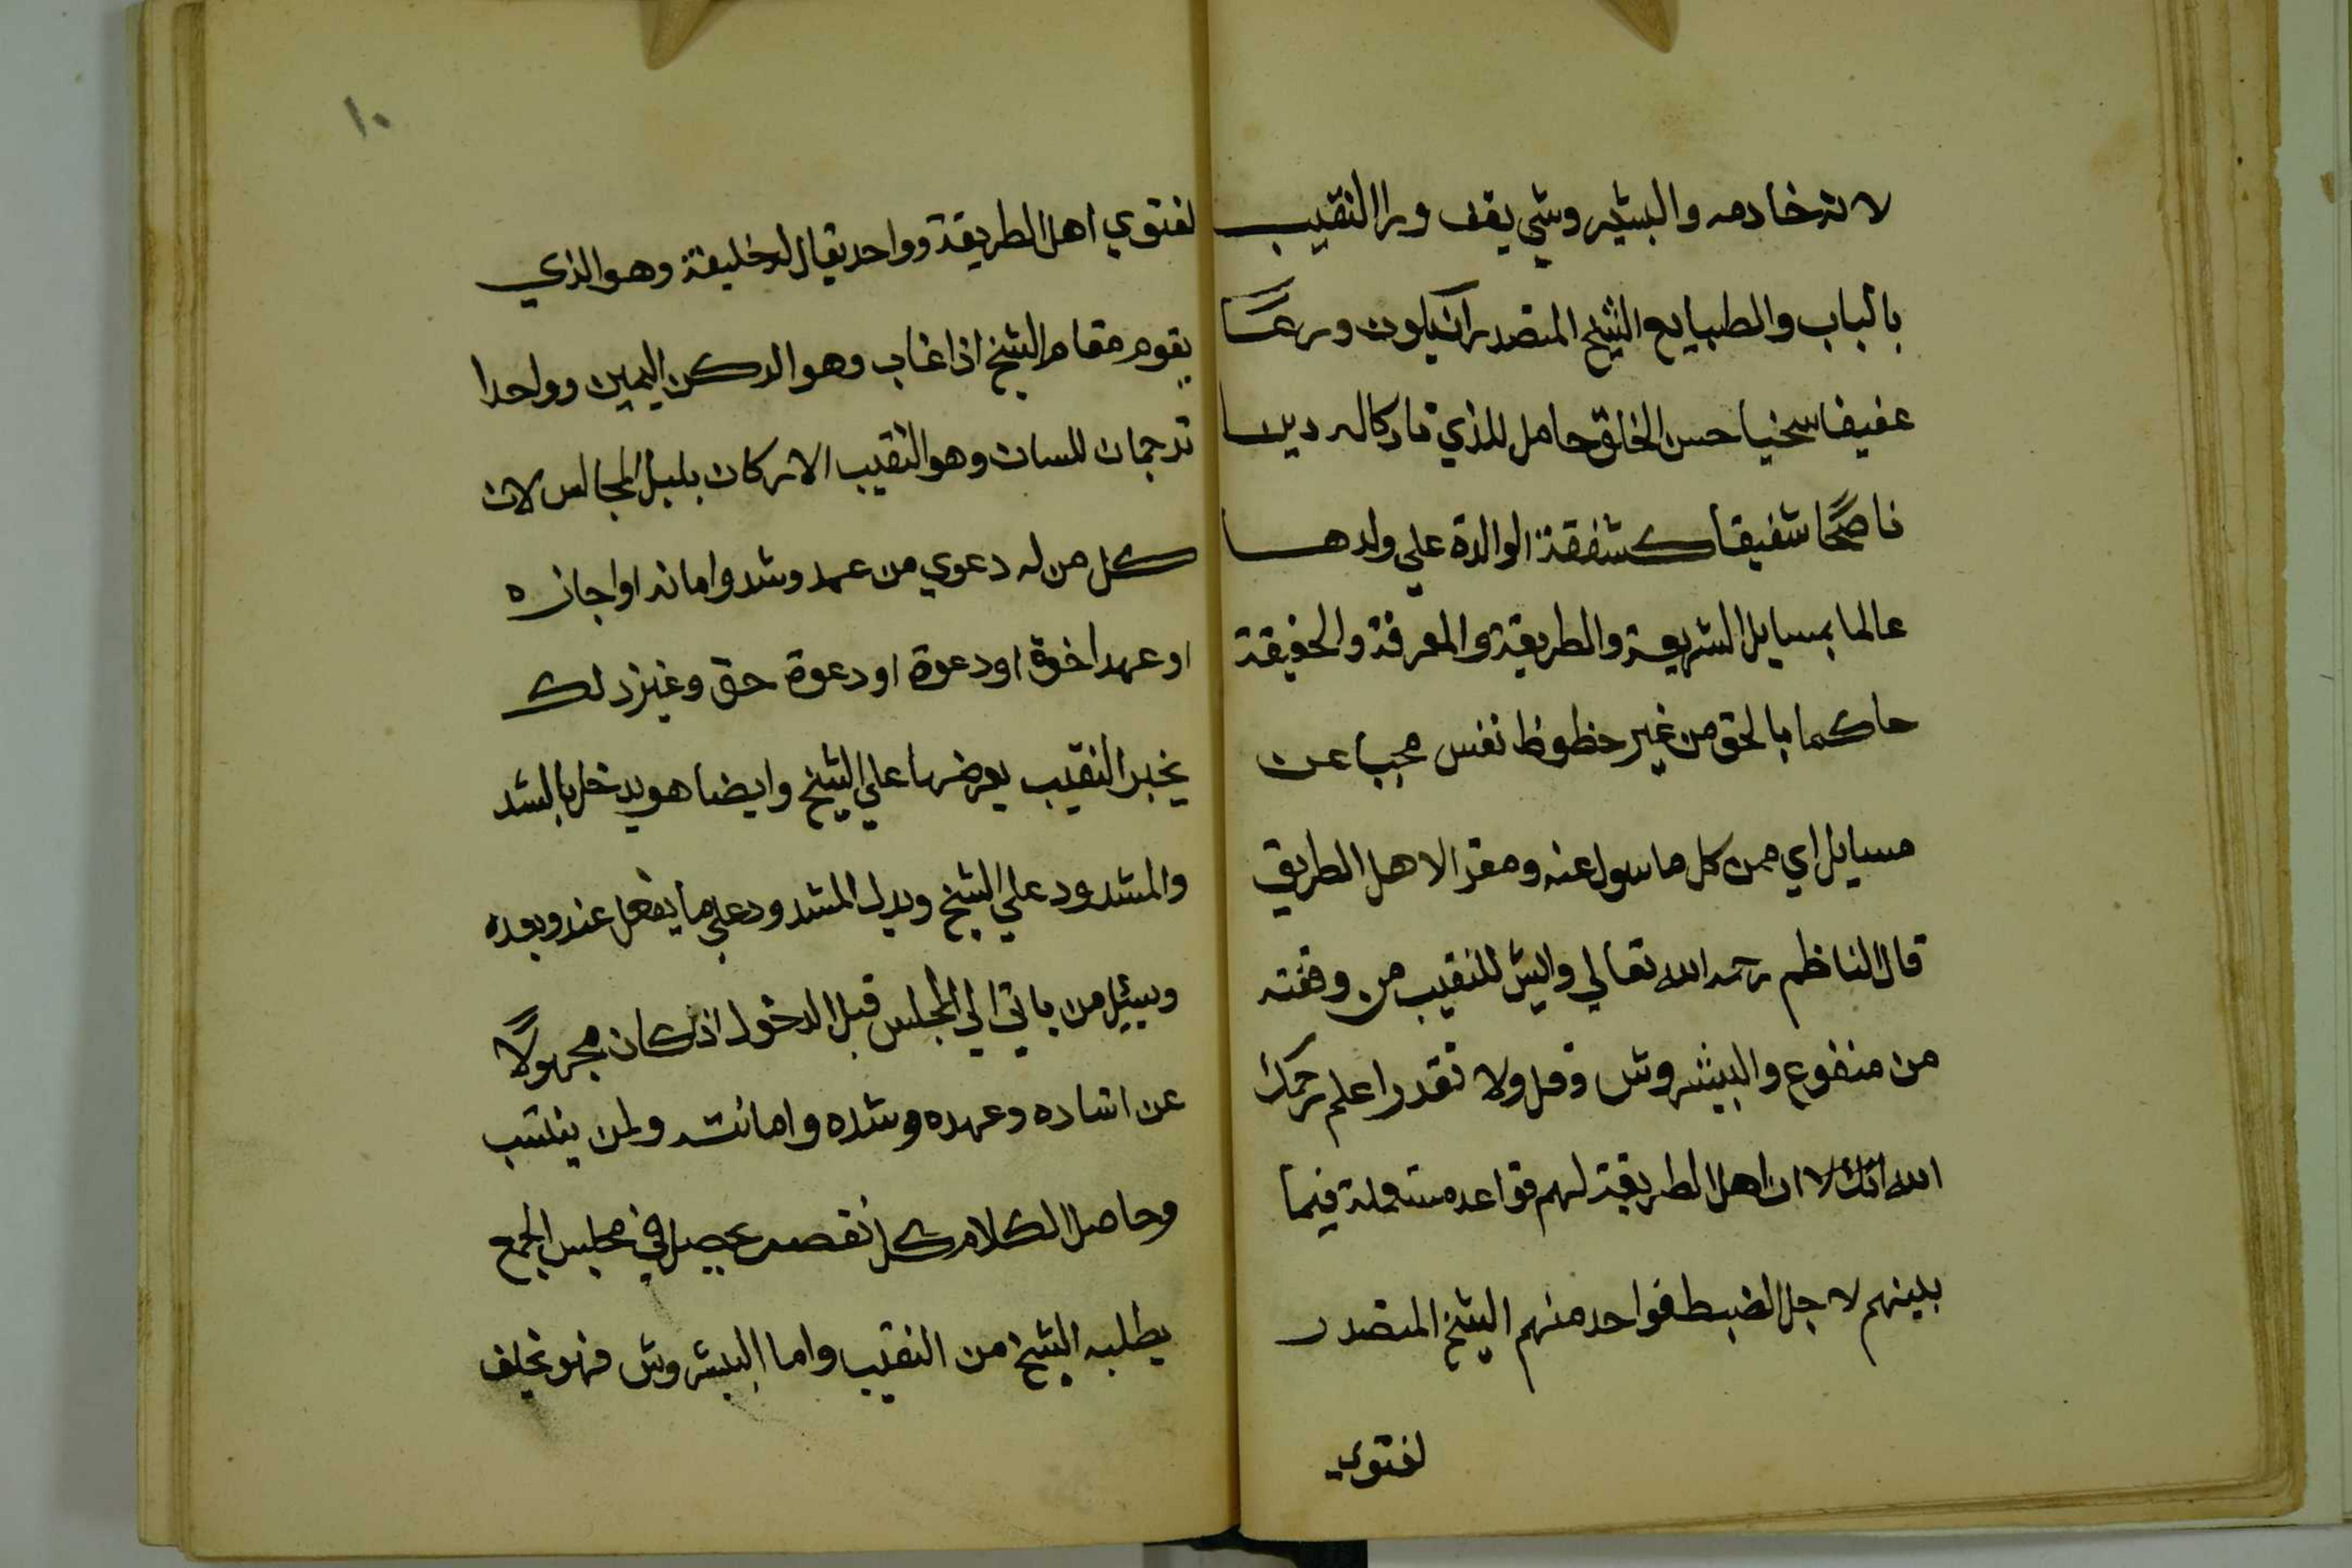 لانه خادمه والبشير وشي يقف ورا النقيب
بالباب والطبايع الشيخ المتصدر ان يكون ورعًا
عفيفا سخيا حسن الخلق حامل للذي تاركا له دينا
ناصحًا شفيقا كشفقة الوالدة علي ولدها
عالما بمسايل الشريعة والطريقة والمعرفة والحقيقة
حاكما بالحق من غير حظوظ نفس مجيبا عن
مسايل اي ممن كل ما سول عنه ومقرا لاهل الطريق
قال الناظم رحمه الله تعالي وليس للنقيب من وقفته
من منفوع والبيشروش وقل ولا تقدر اعلم رحمك
الله انك لا ان اهل الطريقة لهم قواعد مستعملة فيما
بينهم لاجل الضبط فواحد منهم الشيخ المتصدر
لفتوي
١٠
لفتوي اهل الطريقة وواحد يقال له خليفة وهو الذي
يقوم مقام الشيخ اذا غاب وهو الركن اليمين وواحدا
ترجمان للسان وهو النقيب الاركان بلبل المجالس لان
كل من له دعوي من عهد وشد وامانه او اجازه
او عهد اخوة او دعوة او دعوة حق وغير ذلك
يخبر النقيب يعرضها علي الشيخ وايضا هو يدخل بالشد
والمشدود علي الشيخ ويدل المشدود علي ما يفعل عنده وبعده
ويسيل من ياتي الي المجلس قبل الدخول اذ كان مجهولًا
عن استاده وعهده وشده وامانته ولمن ينتسب
وحاصل الكلام كل نقص يحصل في مجلس الجمع
يطلبه الشيخ من النقيب واما البيشروش فهو يخلف